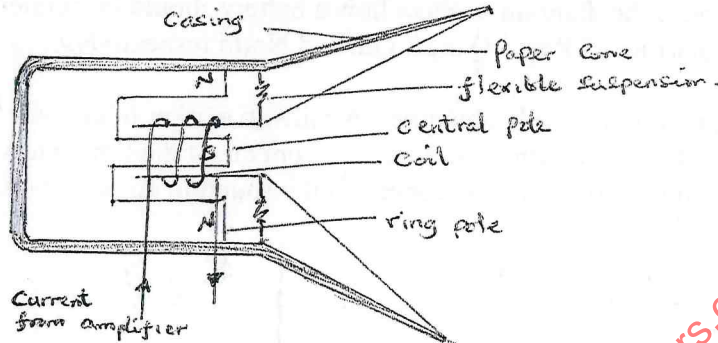 Casing
Paper Cone
N
flexible suspension.
Central pole
S
Coil
N
ring pole
Current
from amplifier